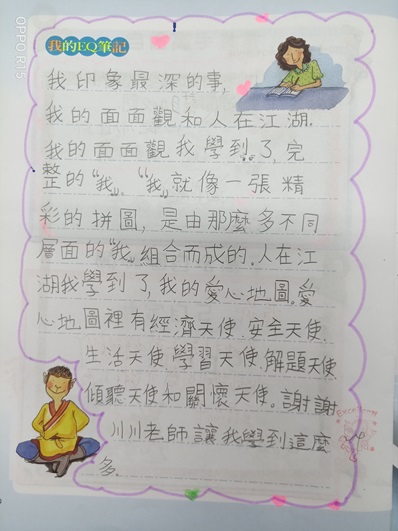 OPPO R15
我的EQ筆記
我印象最深的事,
我的面面觀和人在江湖.
我的面面觀我學到了,完
整的“我”,“我”就像一張精
彩的拼圖,是由那麼多不同
層面的“我”組合而成的.人在江
湖我學到了,我的愛心地圖。愛
心地圖裡有經濟天使、安全天使、
生活天使、學習天使、解題天使、
傾聽天使和關懷天使。謝謝
川川老師讓我學到這麼
多.